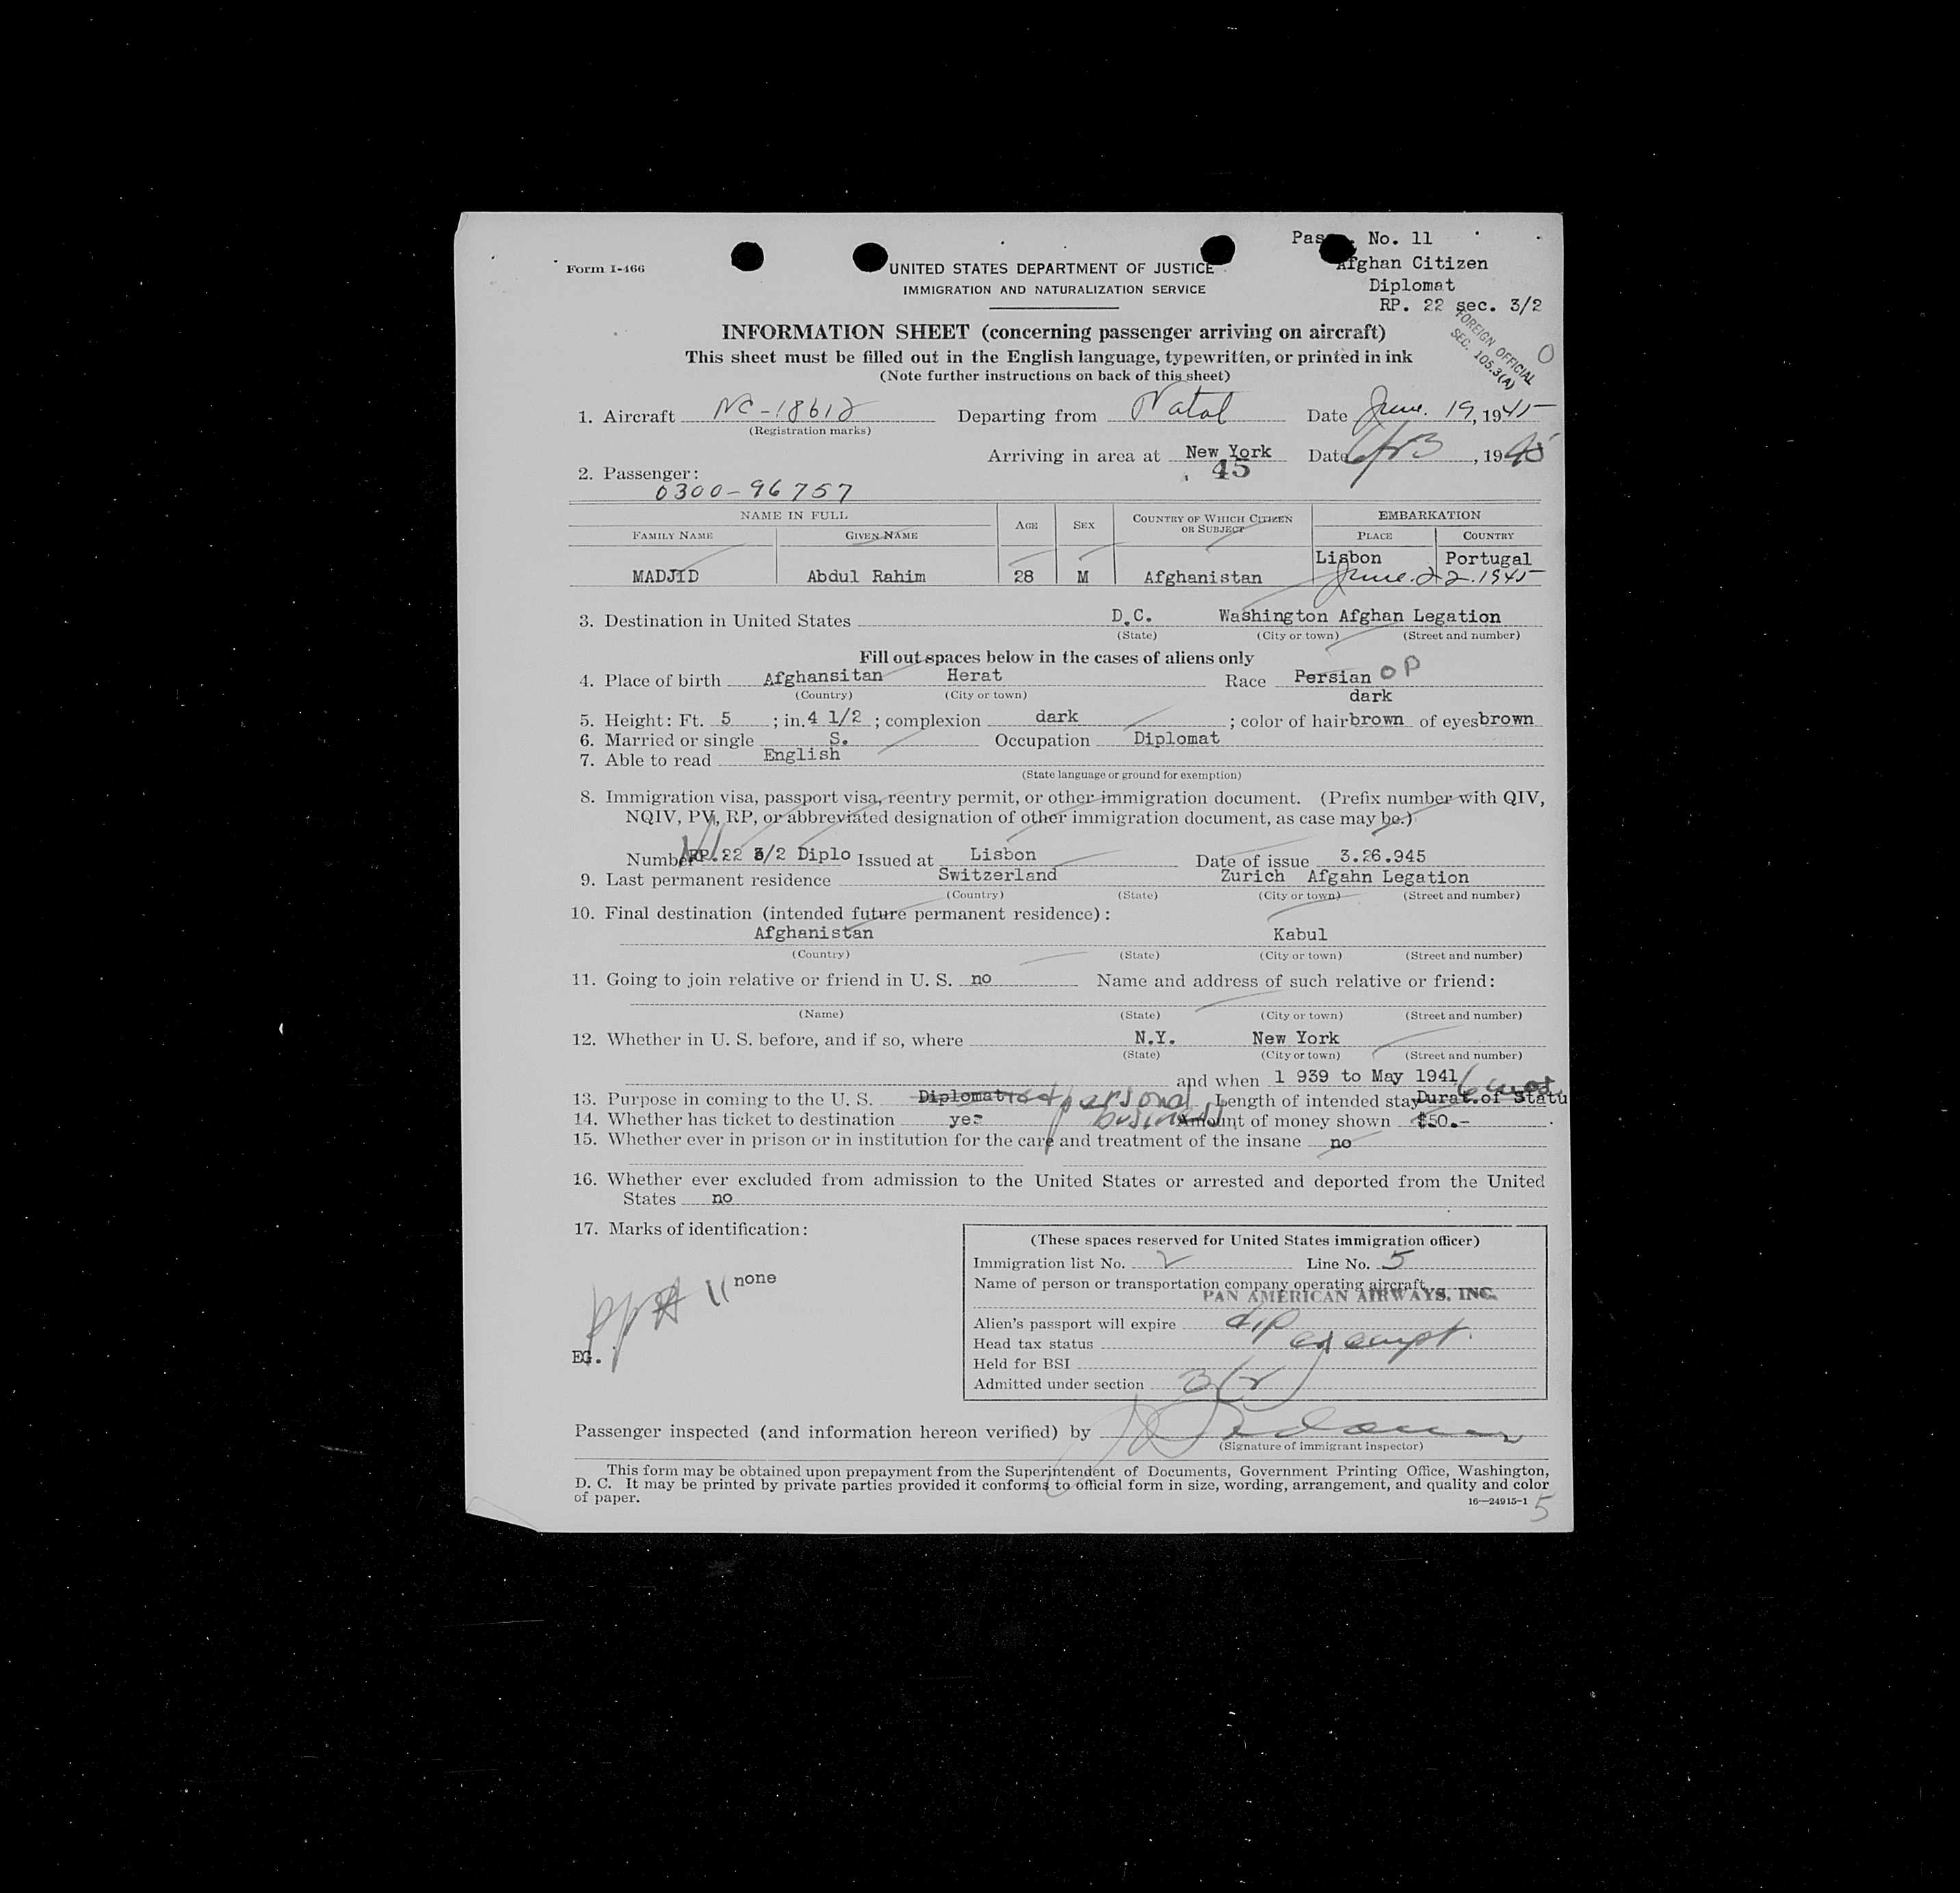 Form I-466
UNITED STATES DEPARTMENT OF JUSTICE
IMMIGRATION AND NATURALIZATION SERVICE
No. 11
Afghan Citizen
Diplomat
RP. 22 sec. 3/2
FOREIGN OFFICIAL
SEC. 105.3(A)
INFORMATION SHEET (concerning passenger arriving on aircraft)
This sheet must be filled out in the English language, typewritten, or printed in ink
(Note further instructions on back of this sheet)
1. Aircraft NC-18612 Departing from Natal Date June 19, 1945
(Registration marks)
Arriving in area at New York Date 1945
45
2. Passenger:
0300-96757
NAME IN FULL AGE SEX COUNTRY OF WHICH CITIZEN OR SUBJECT EMBARKATION
FAMILY NAME GIVEN NAME PLACE COUNTRY
Lisbon Portugal
MADJID Abdul Rahim 28 M Afghanistan June. 22. 1945
3. Destination in United States D.C. Washington Afghan Legation
(State) (City or town) (Street and number)
Fill out spaces below in the cases of aliens only
4. Place of birth Afghansitan Herat Race Persian OP
(Country) (City or town) dark
5. Height: Ft. 5 ; in. 4 1/2 ; complexion dark ; color of hair brown of eyes brown
6. Married or single S. Occupation Diplomat
7. Able to read English
(State language or ground for exemption)
8. Immigration visa, passport visa, reentry permit, or other immigration document. (Prefix number with QIV,
NQIV, PV, RP, or abbreviated designation of other immigration document, as case may be.)
Number RP.22 3/2 Diplo Issued at Lisbon Date of issue 3.26.945
9. Last permanent residence Switzerland Zurich Afgahn Legation
(Country) (State) (City or town) (Street and number)
10. Final destination (intended future permanent residence):
Afghanistan Kabul
(Country) (State) (City or town) (Street and number)
11. Going to join relative or friend in U. S. no Name and address of such relative or friend:
(Name) (State) (City or town) (Street and number)
12. Whether in U. S. before, and if so, where N.Y. New York
(State) (City or town) (Street and number)
and when 1 939 to May 1941
13. Purpose in coming to the U. S. Diplomat personal Length of intended stay Durat.of Statu
14. Whether has ticket to destination yes business Amount of money shown $50.-
15. Whether ever in prison or in institution for the care and treatment of the insane no
16. Whether ever excluded from admission to the United States or arrested and deported from the United
States no
17. Marks of identification:
none
EG.
(These spaces reserved for United States immigration officer)
Immigration list No. 2 Line No. 5
Name of person or transportation company operating aircraft
PAN AMERICAN AIRWAYS, INC.
Alien's passport will expire dip
Head tax status exempt.
Held for BSI
Admitted under section 3(2)
Passenger inspected (and information hereon verified) by
(Signature of immigrant inspector)
This form may be obtained upon prepayment from the Superintendent of Documents, Government Printing Office, Washington,
D. C. It may be printed by private parties provided it conforms to official form in size, wording, arrangement, and quality and color
of paper. 16—24915-1
5